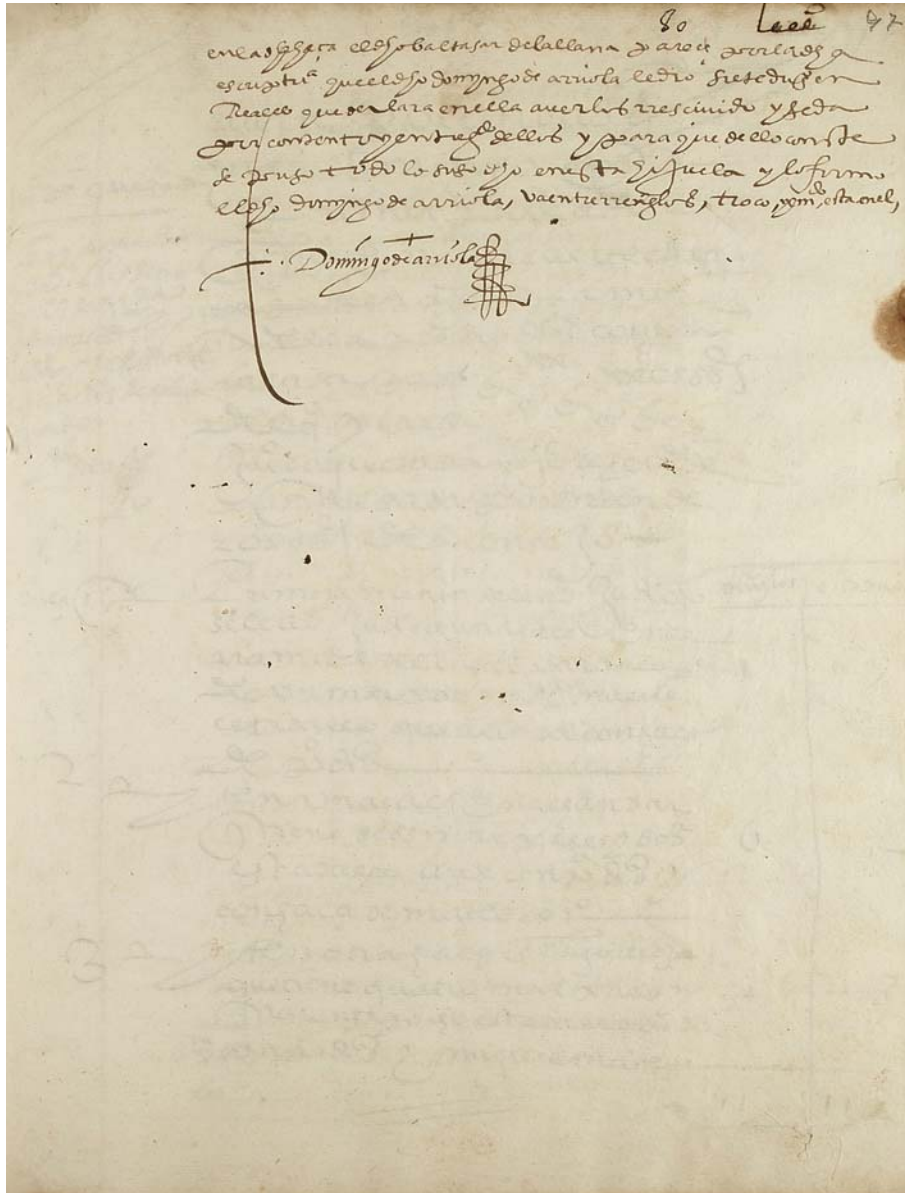 80 97
el dho baltasar de la llana pareçe por la dha
escriptura que el dho domyngo de arriola le dio siete duzºs en
Reales que declara en ella averlos rrescivido y se da
por contento y entregdº dellos y para que dello conste
se puso todo lo suso dho en esta hijuela y lo firmo
el dho domingo de arriola, va entre rrenglºs, troco, esta en el,
Domingo de arriola